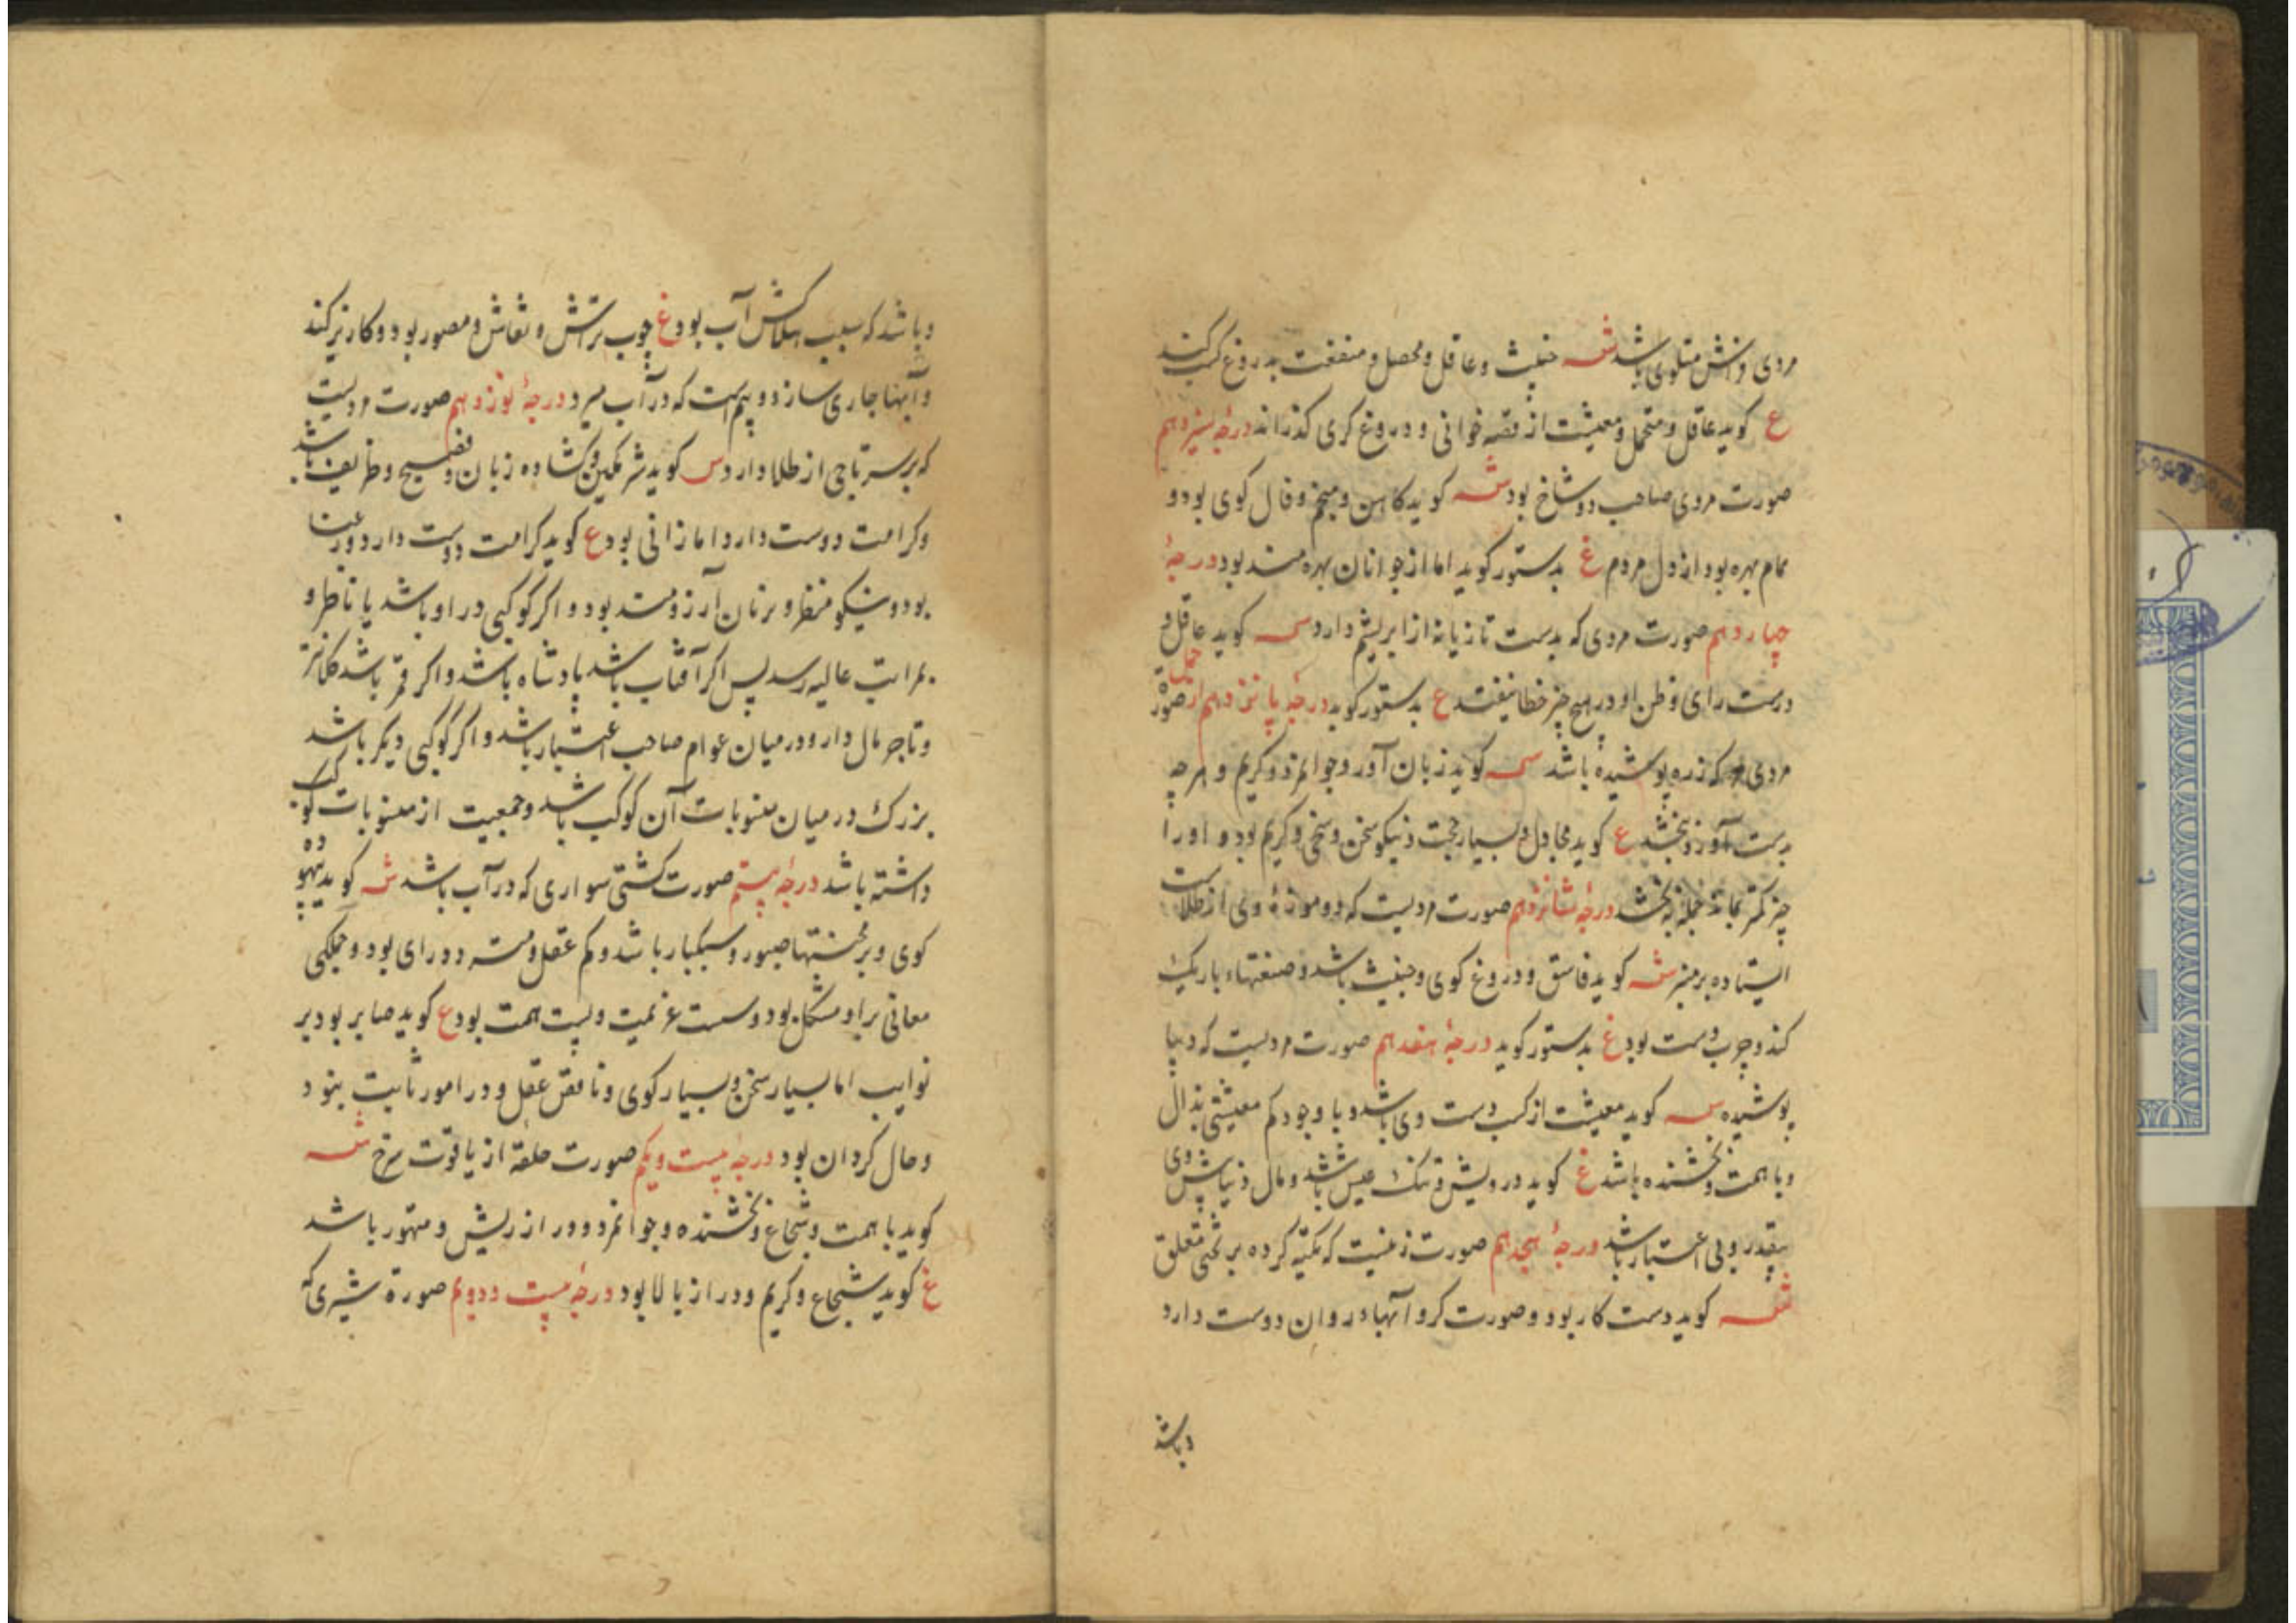 مردی و زنش متلوی باشد شه خبیث و عاقل و محصل و منفعت بدروغ کسب کند
ع کوید عاقل و متحمل و معیشت از قصه خوانی و دروغ کری کذراند درجهٔ سیزدهم
صورت مردی صاحب دو شاخ بود شه کوید کاهن و منجم و فال کوی بود و
تمام بهره بود از دل مردم غ بدستور کوید اما از جوانان بهره مند بود درجهٔ
چهاردهم صورت مردی که بدست تازیانه از ابریشم دارد س کوید عاقل و
درست رای و ظن او در هیچ چیز خطا نیفتد ع بدستور کوید درجهٔ پانزدهم از حمل صورة
مردی که زره پوشیده باشد س کوید زبان آور و جوانمرد و کریم و هر چه
بدست آورد ببخشد ع کوید مجادل و بسیار حجت و نیکو سخن و سخی و کریم بود و او را
چیز کمتر بماند جمله ببخشد درجهٔ شانزدهم صورت مردیست که دو موزهٔ وی از طلاست
ایستاده بر منبر شه کوید فاسق و دروغ کوی و خبیث باشد و صنعتهاء باریک
کند و چرب دست بود غ بدستور کوید درجهٔ هفدهم صورت مردیست که دیبا
پوشیده س کوید معیشت از کسب دست وی باشد و با وجود کم معیشتی بذال
و با همت و بخشنده باشد غ کوید درویش و تنک عیش باشد و مال دنیا پیش وی
بیقدر و بی اعتبار باشد درجهٔ هجدهم صورت زنیست که تکیه کرده بر تختی معلق
شه کوید دست کار بود و صورت کر و آبهاء روان دوست دارد
و باشد
و باشد که سبب هلاکش آب بود غ چوب تراش و نقاش و مصور بود و کاریز کند
و آبها جاری سازد و بیم است که در آب میرد درجهٔ نوزدهم صورت مردیست
که بر سر تاجی از طلا دارد س کوید شرمکین و کشاده زبان و فصیح و ظریف باشد
و کرامت دوست دارد اما زانی بود ع کوید کرامت دوست دارد و رعنا
بود و نیکو منظر و بزنان آرزومند بود و اکر کوکبی در او باشد یا ناظر و
بمراتب عالیه رسد پس اکر آفتاب باشد پادشاه باشد و اکر قمر باشد کلانتر
و تاجر مال دار و در میان عوام صاحب اعتبار باشد و اکر کوکبی دیکر باشد
بزرک در میان منسوبات آن کوکب باشد و جمعیت از منسوبات کوکب
داشته باشد درجهٔ بیستم صورت کشتی سواری که در آب باشد شه کوید بیهوده
کوی و بر محنتها صبور و سبکبار باشد و کم عقل و سست رای بود و جملکی
معانی بر او مشکل بود و سست عزیمت و پست همت بود ع کوید صابر بود بر
نوایب اما بسیار سخن و بسیار کوی و ناقص عقل و در امور ثابت نبود
و حال کردان بود درجهٔ بیست و یکم صورت حلقه از یاقوت سرخ شه
کوید با همت و شجاع و بخشنده و جوانمرد و دراز ریش و متهور باشد
غ کوید شجاع و کریم و دراز بالا بود درجهٔ بیست و دویم صورة شیری که